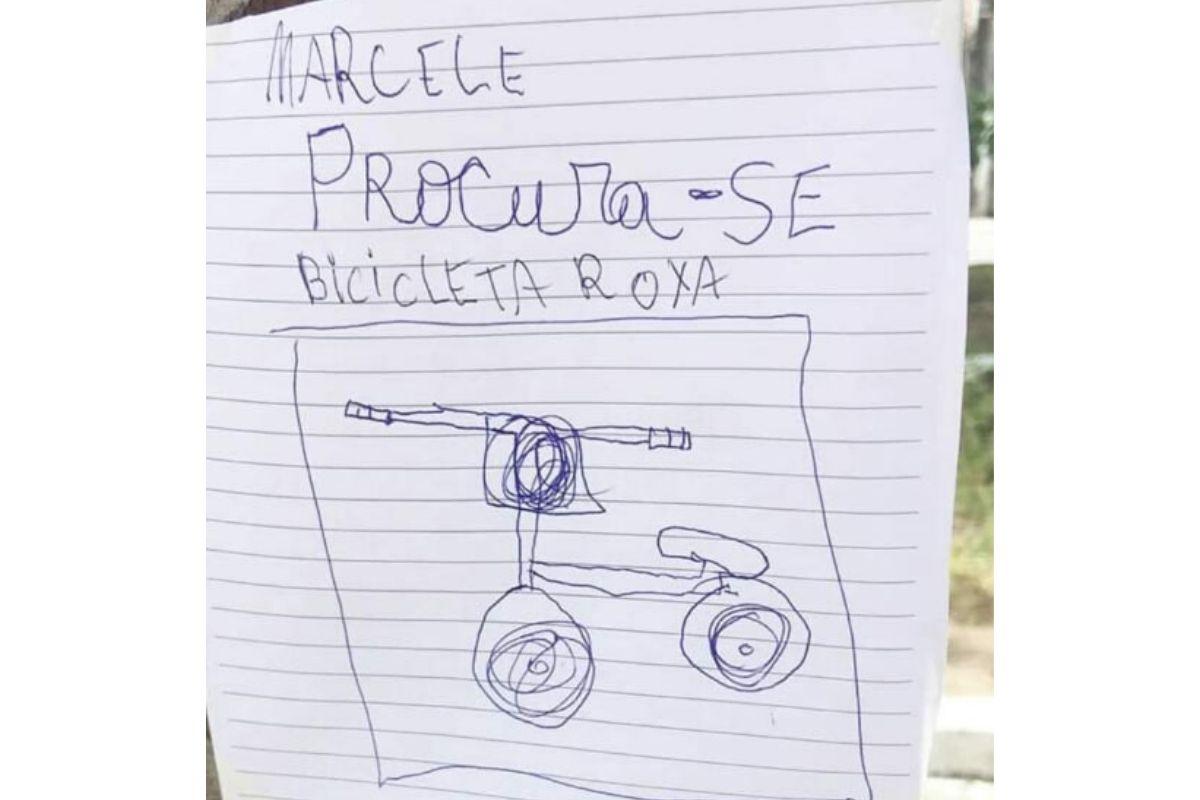 MARCELE
PROCura-SE
BiCiCLETA ROXA